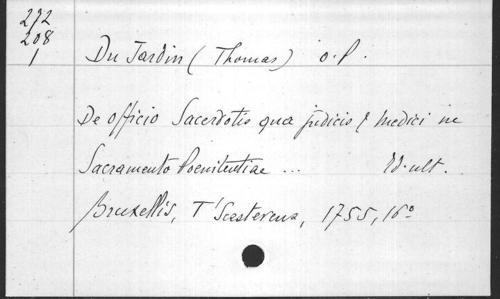 272
208
1
Du Jardin (Thomas) o.P.
De officio Sacerdotis qua judicis & medici in
Sacramento Poenitentiae ... Ed. ult.
Bruxellis, T'Serstevens, 1755, 16°